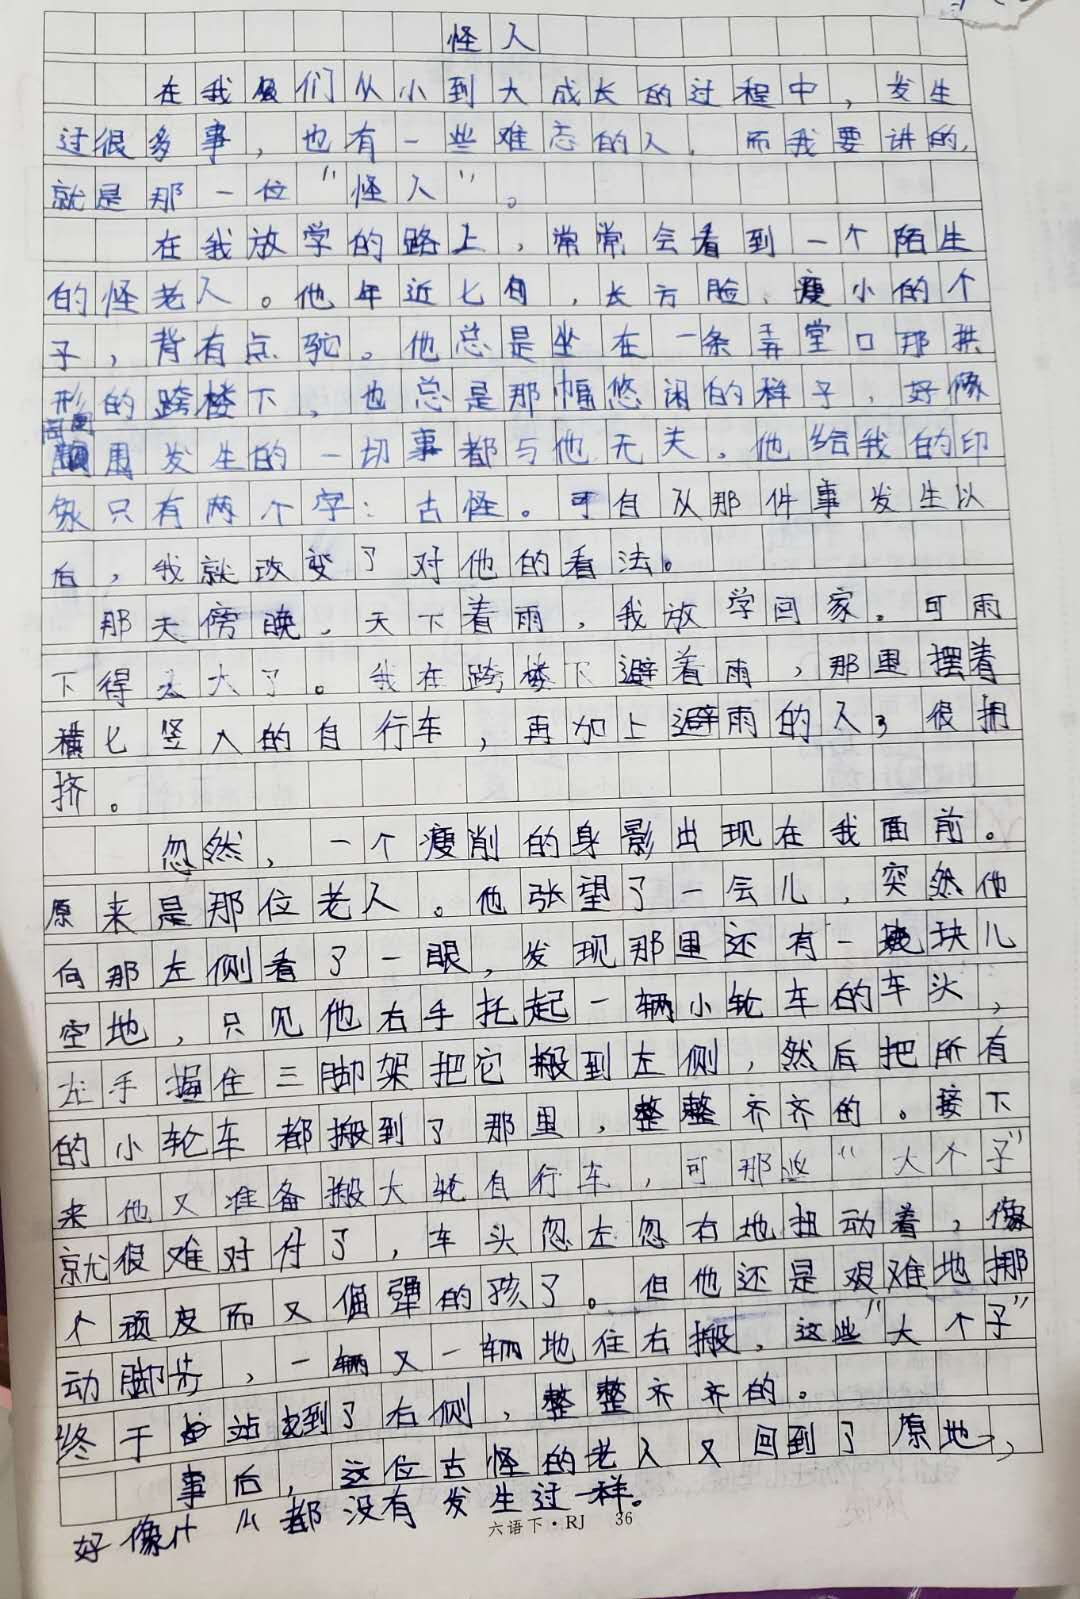 怪人
在我们从小到大成长的过程中，发生
过很多事，也有一些难忘的人，而我要讲的，
就是那一位“怪人”。
在我放学的路上，常常会看到一个陌生
的怪老人。他年近七旬，长方脸、瘦小的个
子，背有点驼。他总是坐在一条弄堂口那拱
形的跨楼下，也总是那幅悠闲的样子，好像
周围发生的一切事都与他无关。他给我的印
象只有两个字：古怪。可自从那件事发生以
后，我就改变了对他的看法。
那天傍晚，天下着雨，我放学回家。可雨
下得太大了。我在跨楼下避着雨，那里摆着
横七竖八的自行车，再加上避雨的人，很拥
挤。
忽然，一个瘦削的身影出现在我面前。
原来是那位老人。他张望了一会儿，突然他
向那左侧看了一眼，发现那里还有一块儿
空地，只见他右手托起一辆小轮车的车头，
左手握住三脚架把它搬到左侧，然后把所有
的小轮车都搬到了那里，整整齐齐的。接下
来他又准备搬大轮自行车，可那些“大个子”
就很难对付了，车头忽左忽右地扭动着，像
个顽皮而又倔犟的孩子。但他还是艰难地挪
动脚步，一辆又一辆地往右搬，这些“大个子”
终于站到了右侧，整整齐齐的。
事后，这位古怪的老人又回到了原地，
好像什么都没有发生过一样。
六语下·RJ 36